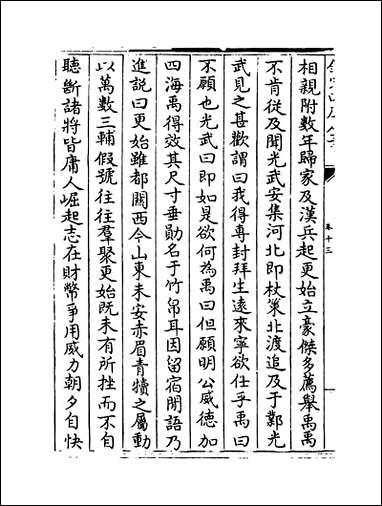 相親附數年歸家及漢兵起更始立豪傑多薦舉禹禹
不肯從及聞光武安集河北即杖策北渡追及于鄴光
武見之甚歡謂曰我得專封拜生遠來寧欲仕乎禹曰
不願也光武曰即如是欲何為禹曰但願明公威德加
四海禹得效其尺寸垂勛名于竹帛耳因留宿閒語乃
進說曰更始雖都關西今山東未安赤眉青犢之屬動
以萬數三輔假號往往羣聚更始既未有所挫而不自
聽斷諸將皆庸人崛起志在財幣爭用威力朝夕自快
卷十三